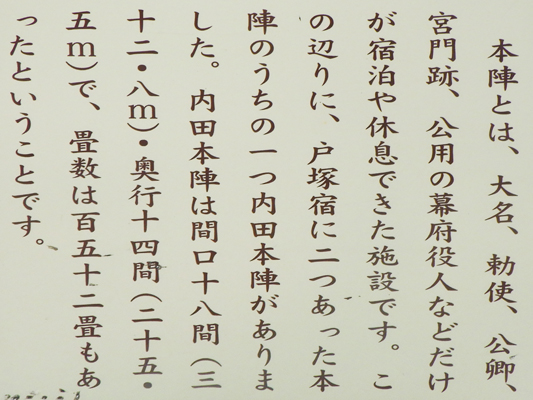 本陣とは、大名、勅使、公卿、
宮門跡、公用の幕府役人などだけ
が宿泊や休息できた施設です。こ
の辺りに、戸塚宿に二つあった本
陣のうちの一つ内田本陣がありま
した。内田本陣は間口十八間(三
十二・八m)・奥行十四間(二十五・
五m)で、畳数は百五十二畳もあ
ったということです。